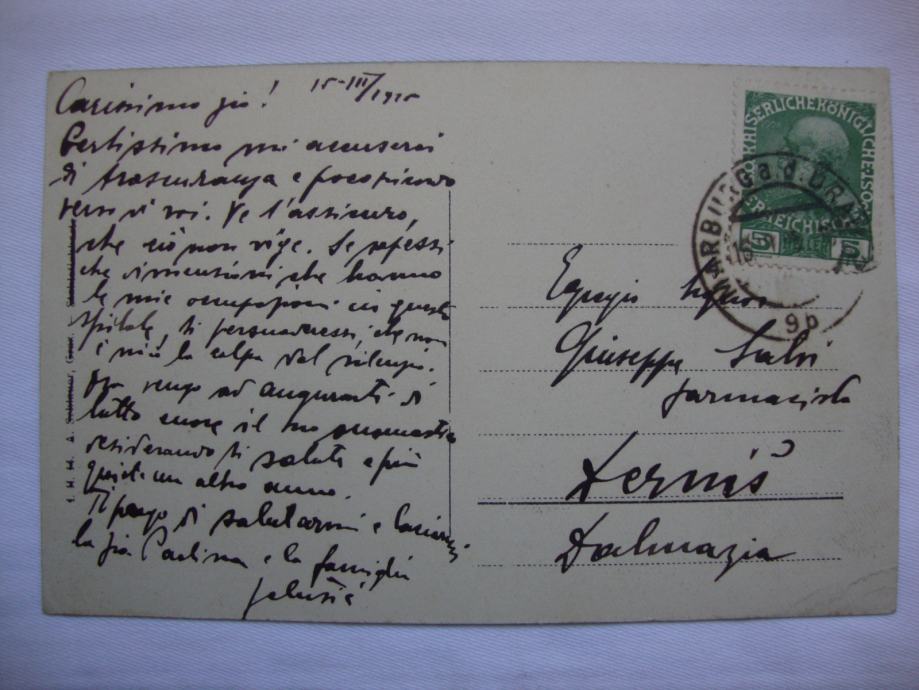 Carissimo zio! 15-III/1915
Certissimo mi accuserai
di trascuranza e poco
verso di voi. Ve l'assicuro,
che ciò non vige. Se sapessi
che dimensioni che hanno
le mie occupazioni in questo
spitale, ti persuaderessi, che non
è mia la colpa del silenzio.
Ora vengo ad augurarti di
tutto cuore il tuo onomastico
desiderando ti salute e più
quiete un altro anno.
Ti prego di salutarmi e baciarmi
la zia Paolina e la famiglia
KAISERLICHE KÖNIGLICHE
5 HELLER
MARBURG a.d. DRAU
9b
Egregio Signor
Giuseppe Salvi
farmacista
Derniš
Dalmazia